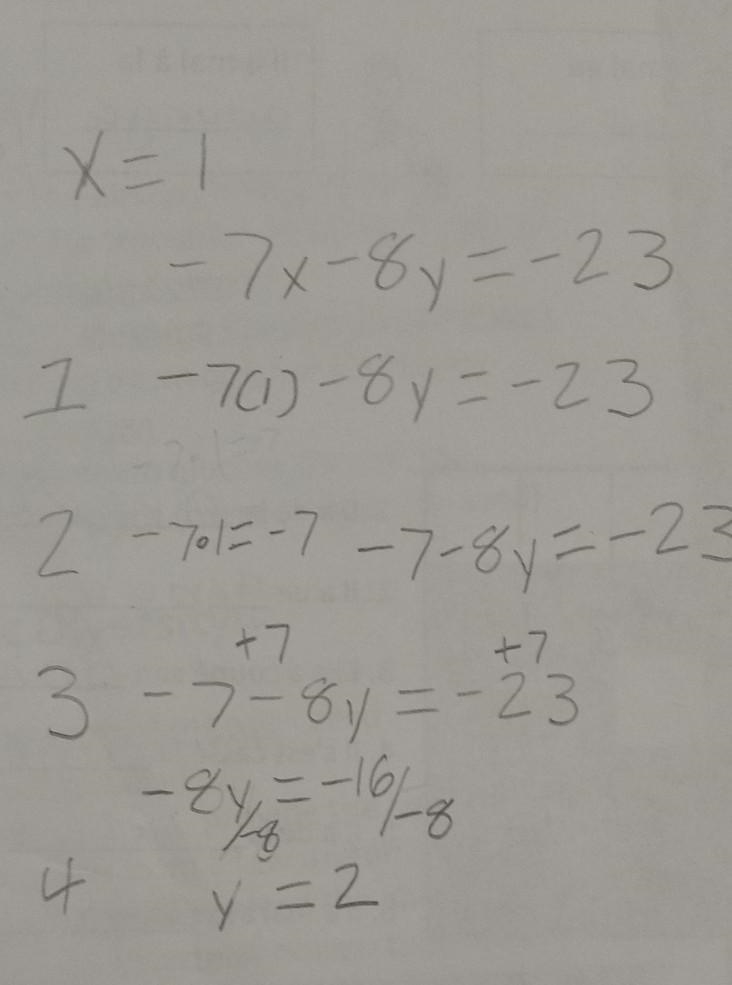 x = 1
-7x - 8y = -23
1 -7(1) - 8y = -23
2 -7•1 = -7 -7 - 8y = -23
+7 +7
3 -7 - 8y = -23
-8y/-8 = -16/-8
4 y = 2